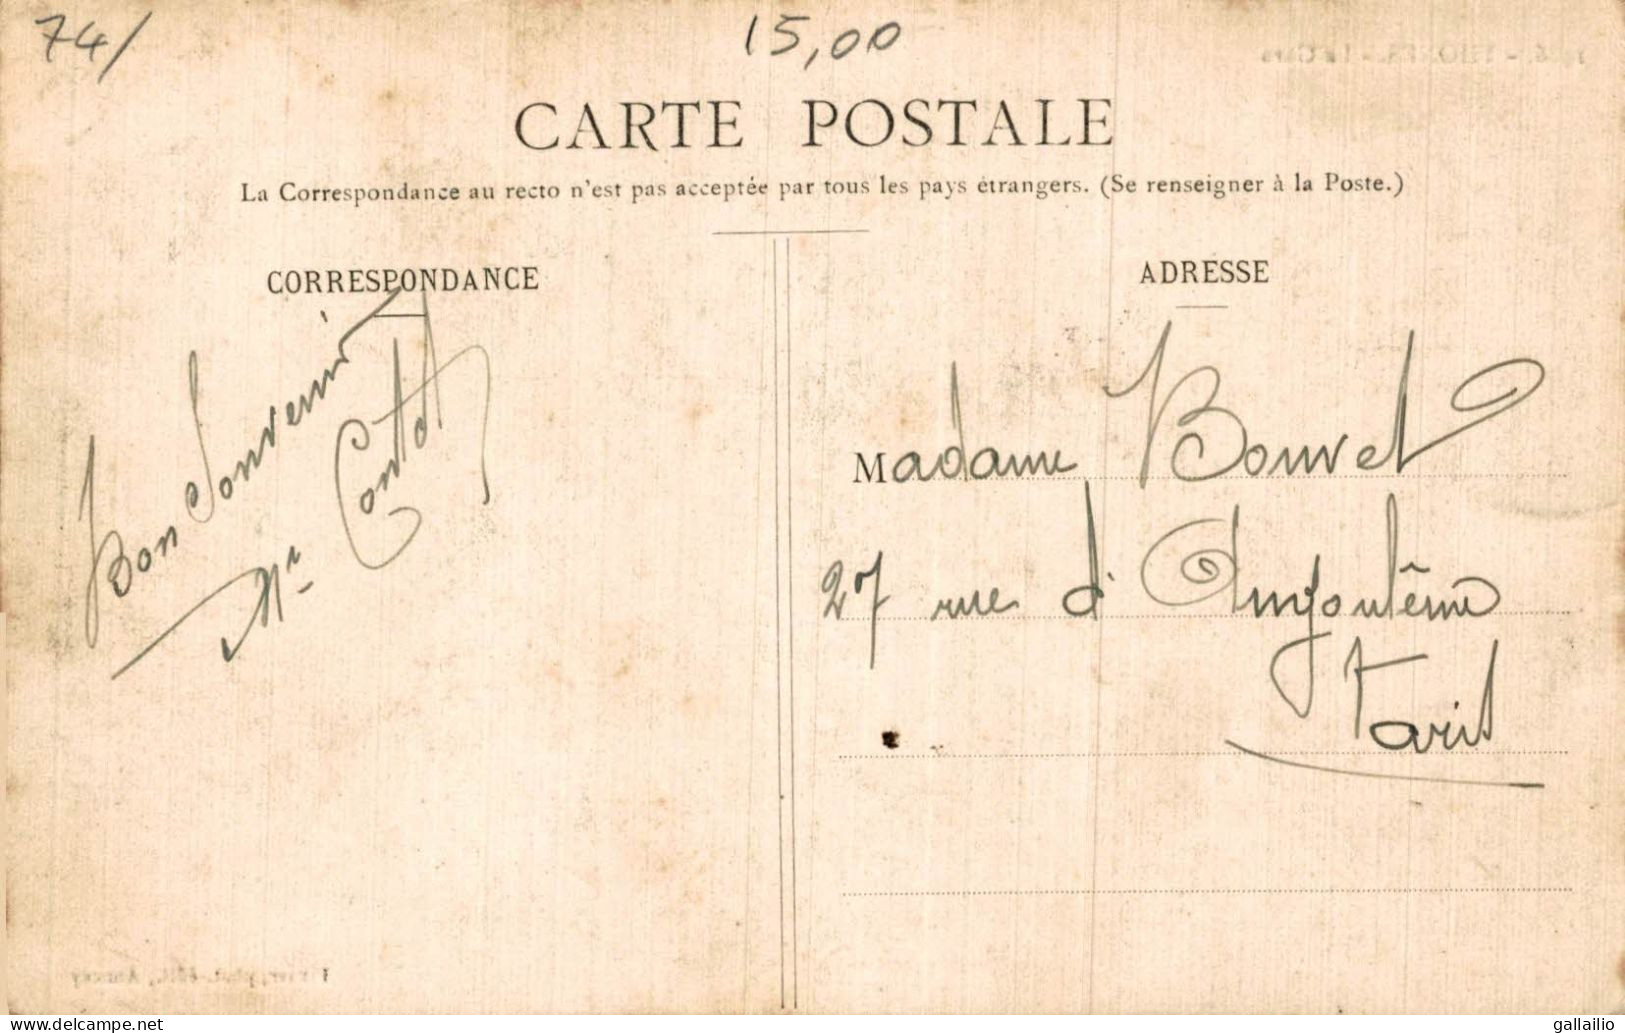 74/
15,00
CARTE POSTALE
La Correspondance au recto n'est pas acceptée par tous les pays étrangers. (Se renseigner à la Poste.)
CORRESPONDANCE
ADRESSE
Bon Souvenir
Madame Bouvet
27 rue d'Angoulême
Paris
www.delcampe.net
gallailio